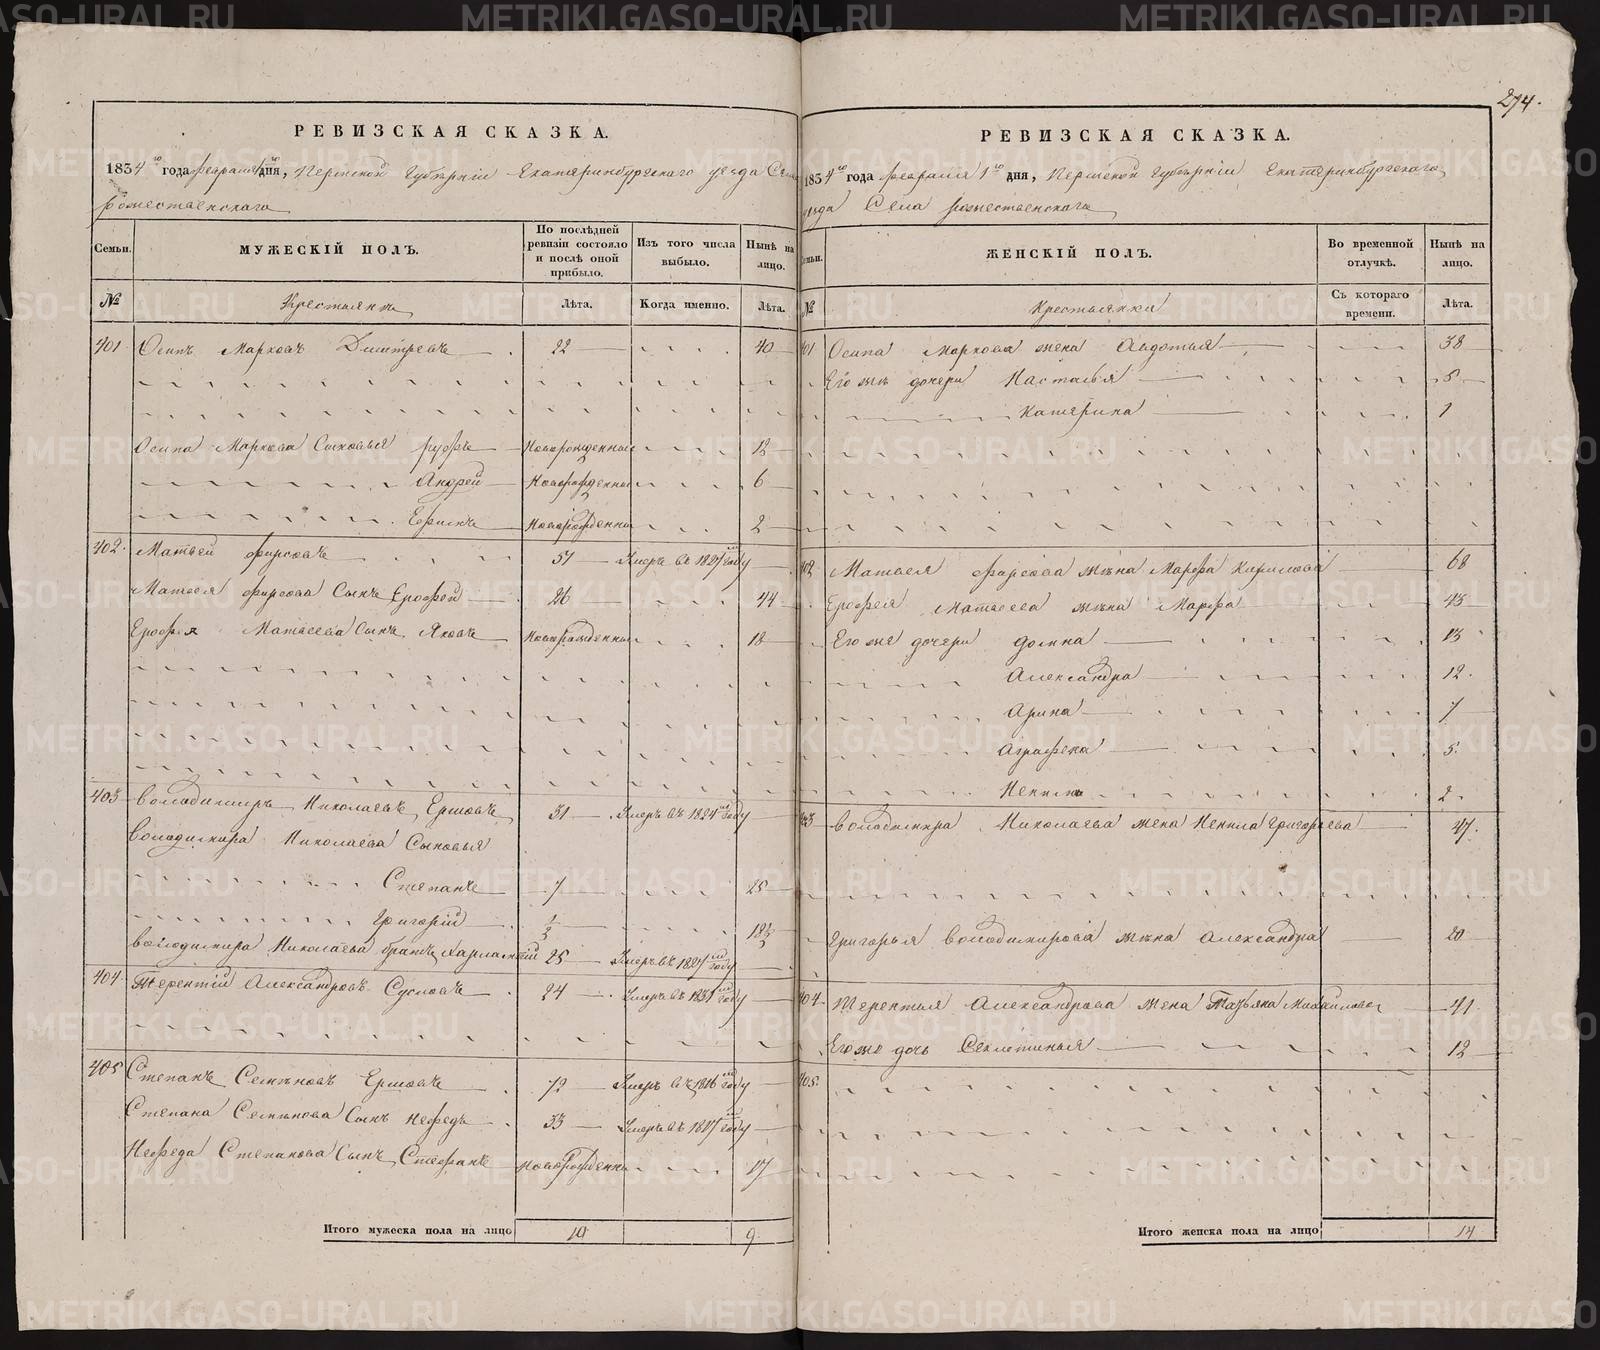 274.
РЕВИЗСКАЯ СКАЗКА.
1834го года февраля 1го дня, Пермской Губерніи Екатеринбургскаго уезда Села
рожественскаго
Семьи. МУЖЕСКІЙ ПОЛЪ. По послѣдней ревизіи состояло и послѣ оной прибыло. Изъ того числа выбыло. Нынѣ на лицо.
№ Крестьянъ Лѣта. Когда именно. Лѣта.
401 Осипъ Марковъ Дмитревъ 22 40
Осипа Маркова Сыновья руфъ Новорожденный 12
Андрей Новорожденны 6
Ефимъ Новорожденны 2
402. Матвей фирсовъ 51 Умеръ въ 1827м году
Матвея фирсова Сынъ Ерофей 26 44
Ерофея Матвеева Сынъ Яковъ Новорожденны 18
403 Володимиръ Николаевъ Ершовъ 31 Умеръ въ 1824м году
Володимира Николаева Сыновья
Степанъ 7 25
Григорій 1/2 18 1/2
Володимира Николаева братъ Харлампій 25 Умеръ въ 1827м году
404 Терентій Александровъ Сусловъ 24 Умеръ въ 1831м году
405 Степанъ Семѣновъ Ершовъ 72 Умеръ въ 1816м году
Степана Семѣнова Сынъ Нефедъ 33 Умеръ въ 1817м году
Нефеда Степанова Сынъ Стефанъ Новорожденны 17
Итого мужеска пола на лицо 10 9
РЕВИЗСКАЯ СКАЗКА.
1834го года февраля 1го дня, Пермской Губерніи Екатеринбургскаго
уезда Села рожественскаго
Семьи. ЖЕНСКІЙ ПОЛЪ. Во временной отлучкѣ. Нынѣ на лицо.
№ Крестьянки Съ котораго времени. Лѣта.
401 Осипа Маркова жена Авдотья 38
Его жъ дочери Настасья 5
Катерина 1
402 Матвея фирсова жѣна Марфа Кирилова 68
Ерофея Матвеева жѣна Марфа 43
Его же дочери домна 13
Александра 12.
Арина 7
Аграфена 5.
Ненила 2.
403 Володимира Николаева жена Ненила Григорьева 47.
Григорья Володимирова жѣна Александра 20
404 Терентья Александрова жена Татьяна Михайлова 41
Его же дочь Секлетинья 12
405.
Итого женска пола на лицо 14
METRIKI.GASO-URAL.RU